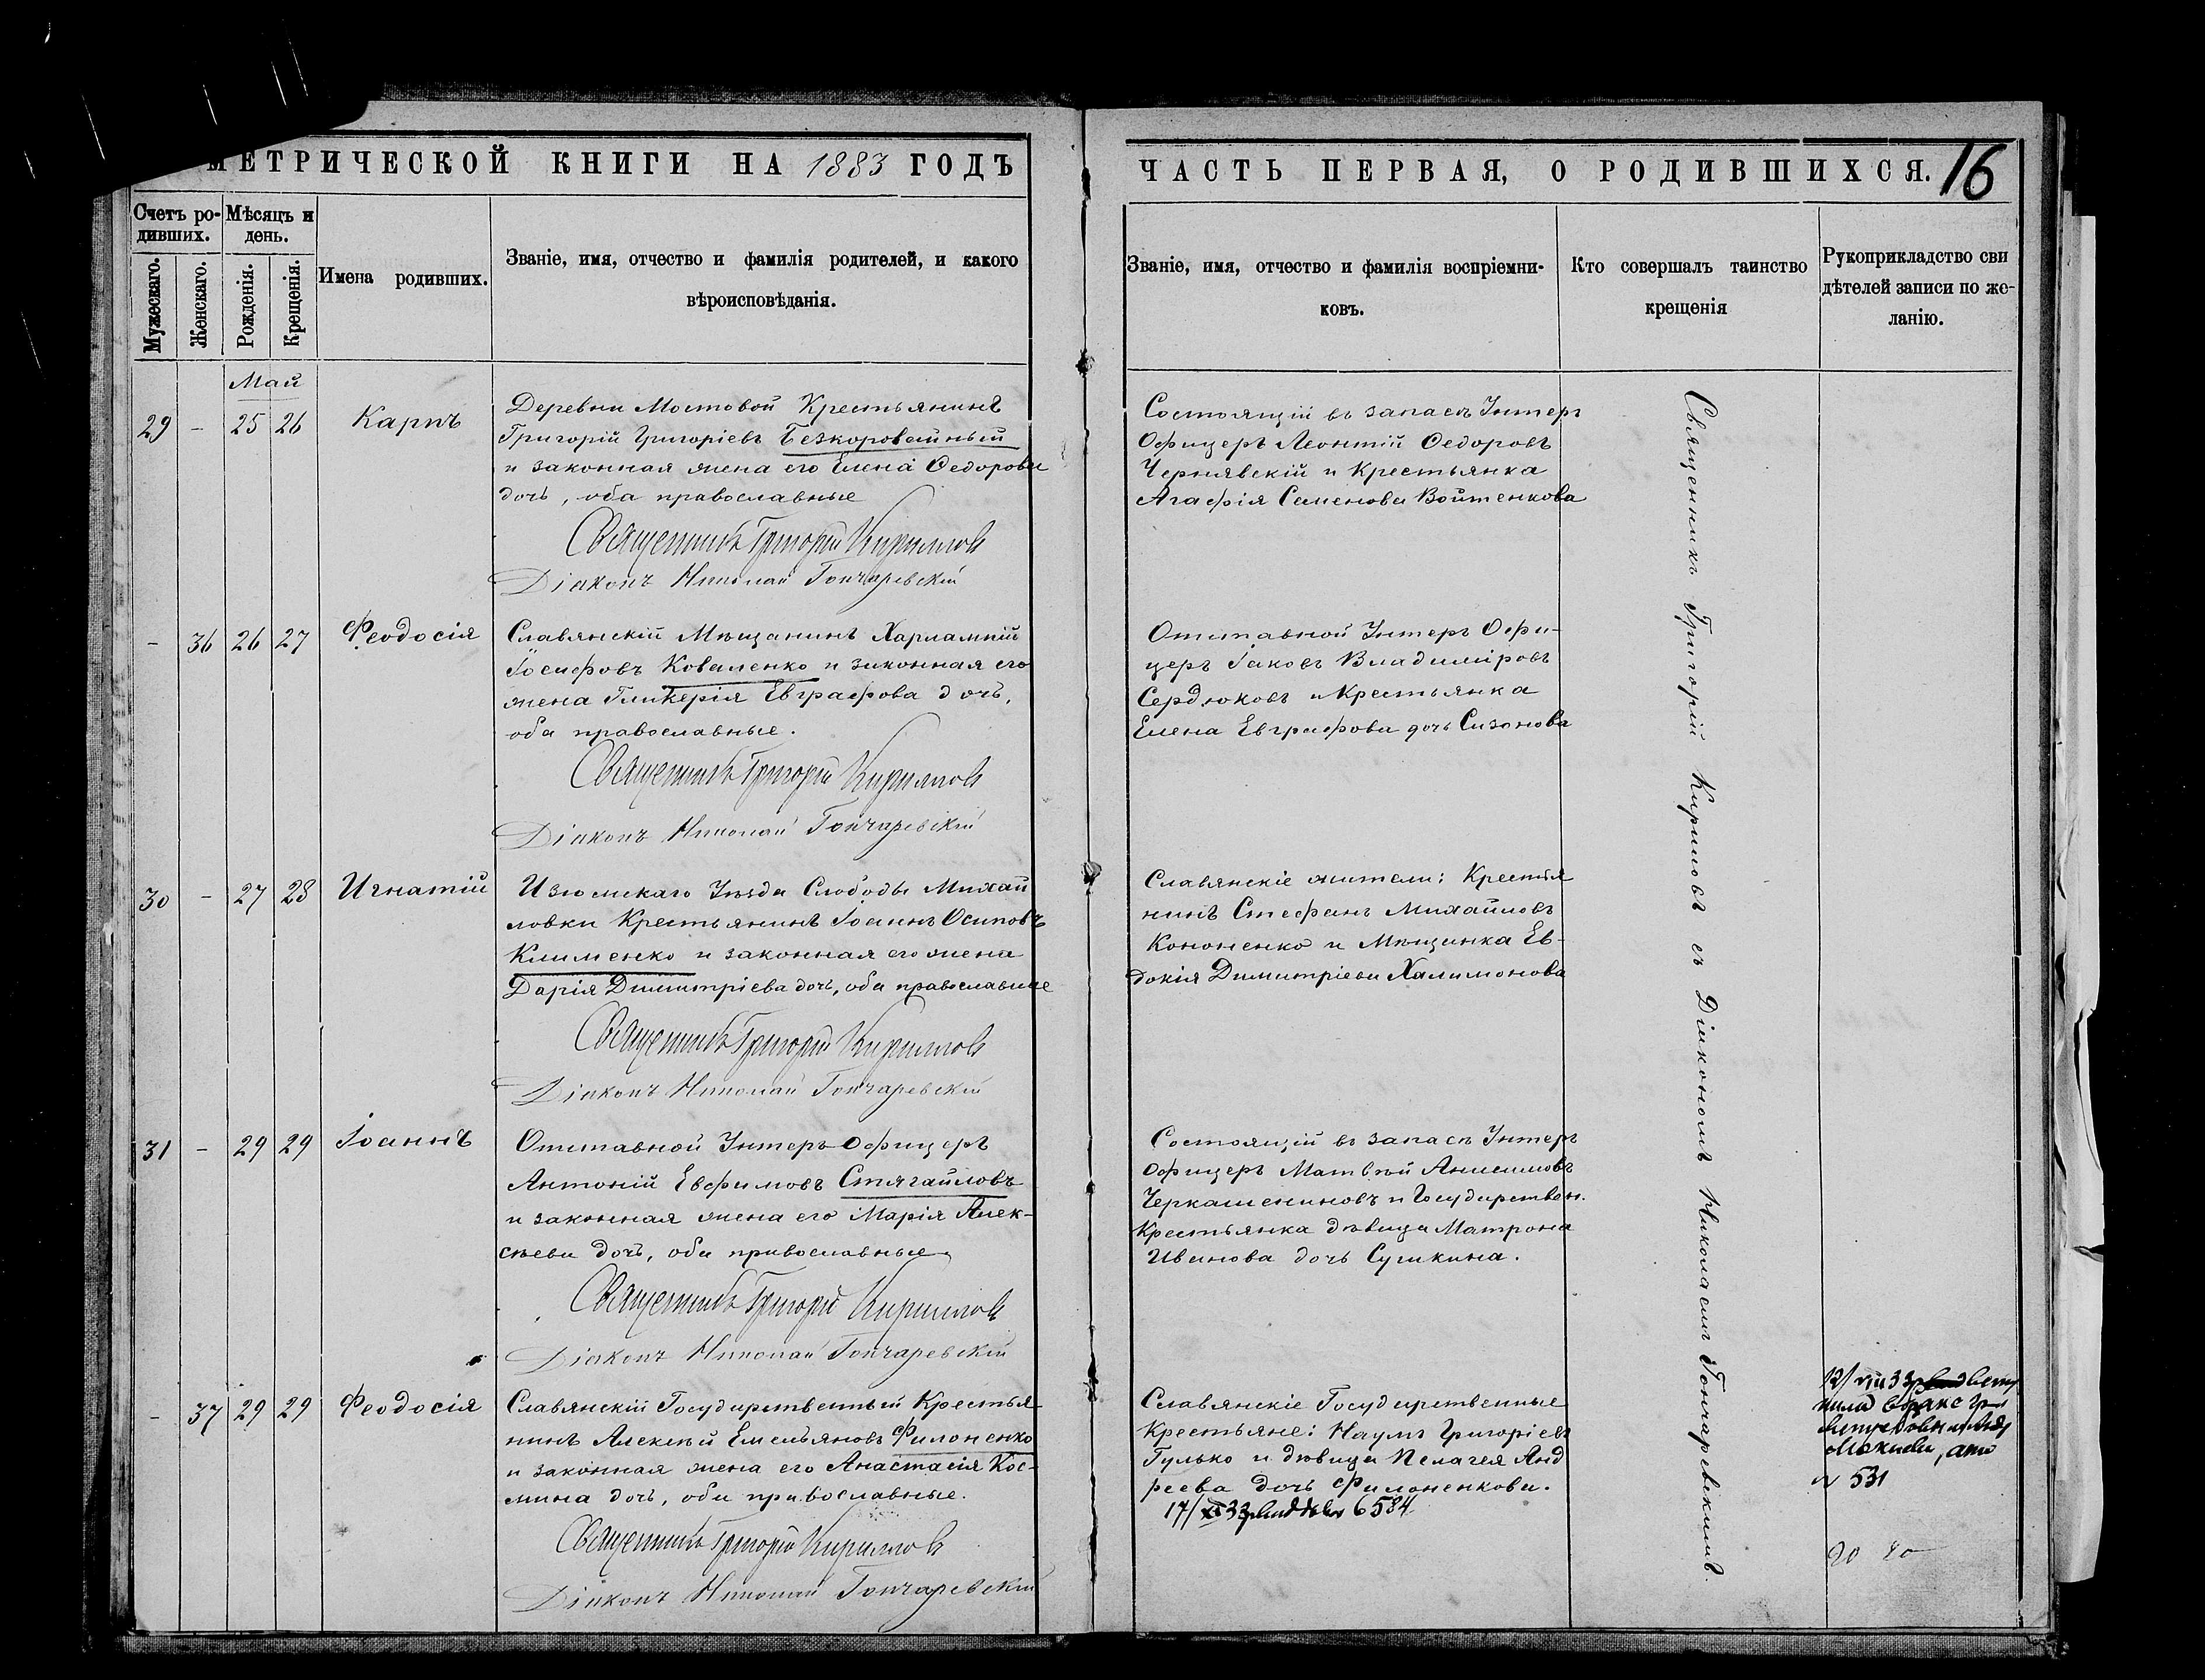 МЕТРИЧЕСКОЙ КНИГИ НА 1883 ГОДЪ
Счетъ ро-
дивших.
Мѣсяцъ и
день.
Мужескаго.
Женскаго.
Рожденія.
Крещенія.
Имена родивших.
Званіе, имя, отчество и фамилія родителей, и какого
вѣроисповѣданія.
Май
29 - 25 26 Карпъ
Деревни Мостовой Крестьянинъ
Григорій Григоріевъ Безкоровайный
и законная жена его Елена Ѳедорова
дочь, оба православные
Священникъ Григорій Кирилловъ
Діаконъ Николай Гончаревскій
- 36 26 27 Ѳеодосія
Славянскій Мѣщанинъ Харлампій
Іосифовъ Коваленко и законная его
жена Гликерія Евграфова дочь,
оба православные.
Священникъ Григорій Кирилловъ
Діаконъ Николай Гончаревскій
30 - 27 28 Игнатій
Изюмскаго Уѣзда Слободы Михай
ловки Крестьянинъ Іоаннъ Осиповъ
Клименко и законная его жена
Дарія Димитріева дочь, оба православные
Священникъ Григорій Кирилловъ
Діаконъ Николай Гончаревскій
31 - 29 29 Іоаннъ
Отставной Унтеръ-Офицеръ
Антоній Евфимовъ Стягайловъ
и законная жена его Марія Алек-
сѣева дочь, оба православные
Священникъ Григорій Кирилловъ
Діаконъ Николай Гончаревскій
- 37 29 29 Ѳеодосія
Славянскій Государственный Крестья-
нинъ Алексѣй Емельяновъ Филоненко
и законная жена его Анастасія Кос-
мина дочь, оба православные.
Священникъ Григорій Кирилловъ
Діаконъ Николай Гончаревскій
ЧАСТЬ ПЕРВАЯ, О РОДИВШИХСЯ. 16
Званіе, имя, отчество и фамилія воспріемни-
ковъ.
Кто совершалъ таинство
крещенія
Рукоприкладство сви
дѣтелей записи по же-
ланію.
Состоящій въ запасѣ Унтеръ
Офицеръ Леонтій Ѳедоровъ
Чернявскій и Крестьянка
Агафія Семенова Войтенкова
Отставной Унтеръ Офи-
церъ Іаковъ Владиміровъ
Сердюковъ и Крестьянка
Елена Евграфова дочь Сизонова
Славянскіе жители: Крестья
нинъ Стефанъ Михайловъ
Кононенко и Мѣщанка Ев-
докія Димитріева Халимонова
Состоящій въ запасѣ Унтеръ
Офицеръ Матвѣй Анисимовъ
Черкашениновъ и Государствен.
Крестьянка дѣвица Матрона
Иванова дочь Сушкина.
Славянскіе Государственные
Крестьяне: Наумъ Григоріевъ
Гулько и дѣвица Пелагея Анд
реева дочь Филоненкова.
17/XI 33 6584
Священникъ Григорій Кирилловъ съ Діакономъ Николаемъ Гончаревскимъ.
12/VIII 33
№ 531
20 80